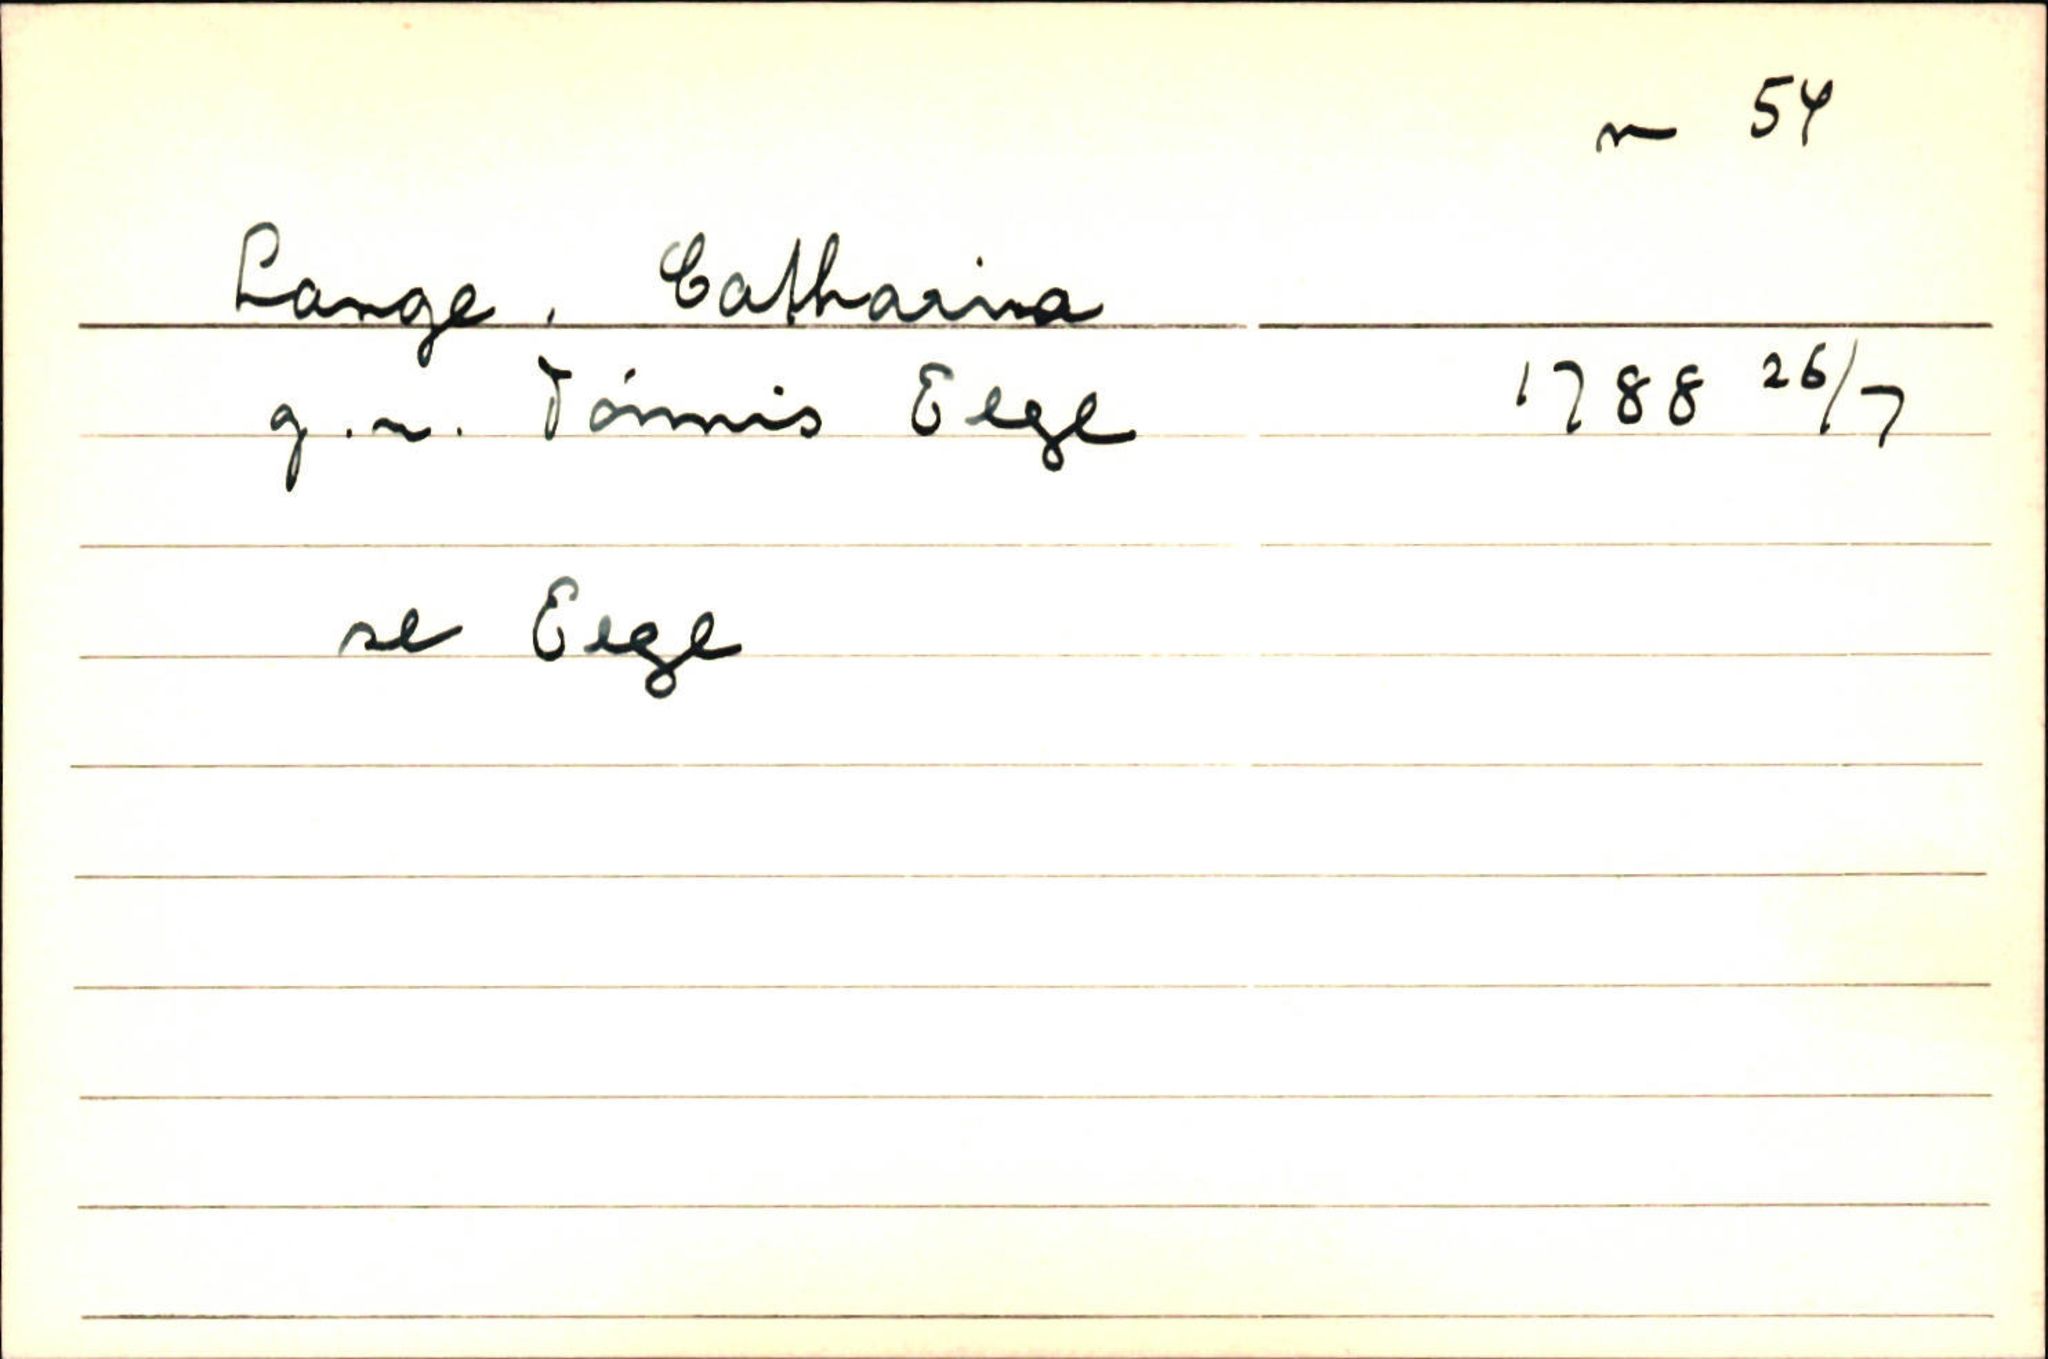 n 54
Lange, Catharina
g.n. Tónnis Eege 1788 26/7
se Eege